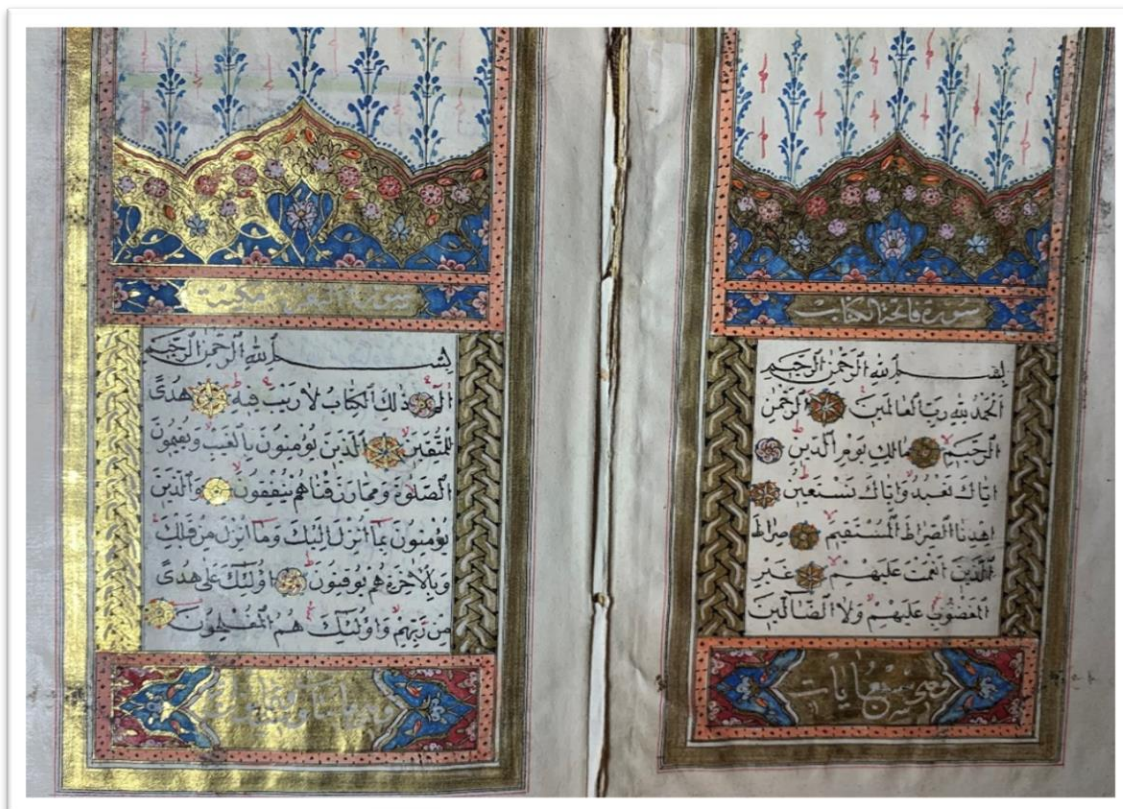 سورة فاتحة الكتاب
بِسْمِ ٱللَّهِ ٱلرَّحْمٰنِ ٱلرَّحِيمِ
اَلْحَمْدُ لِلّٰهِ رَبِّ ٱلْعَالَمِينَ ٱلرَّحْمٰنِ
ٱلرَّحِيمِ مَالِكِ يَوْمِ ٱلدِّينِ
اِيَّاكَ نَعْبُدُ وَاِيَّاكَ نَسْتَعِينُ
اِهْدِنَا ٱلصِّرَاطَ ٱلْمُسْتَقِيمَ صِرَاطَ
ٱلَّذِينَ اَنْعَمْتَ عَلَيْهِمْ غَيْرِ
ٱلْمَغْضُوبِ عَلَيْهِمْ وَلَا ٱلضَّالِّينَ
وهي سبع ايات
سورة البقرة مكية
بِسْمِ ٱللَّهِ ٱلرَّحْمٰنِ ٱلرَّحِيمِ
الٓمٓ ذٰلِكَ ٱلْكِتَابُ لَا رَيْبَ فِيهِ هُدًى
لِلْمُتَّقِينَ ٱلَّذِينَ يُؤْمِنُونَ بِالْغَيْبِ وَيُقِيمُونَ
ٱلصَّلٰوةَ وَمِمَّا رَزَقْنَاهُمْ يُنْفِقُونَ وَٱلَّذِينَ
يُؤْمِنُونَ بِمَآ اُنْزِلَ اِلَيْكَ وَمَآ اُنْزِلَ مِنْ قَبْلِكَ
وَبِالْاٰخِرَةِ هُمْ يُوقِنُونَ اُولٰٓئِكَ عَلٰى هُدًى
مِنْ رَبِّهِمْ وَاُولٰٓئِكَ هُمُ ٱلْمُفْلِحُونَ